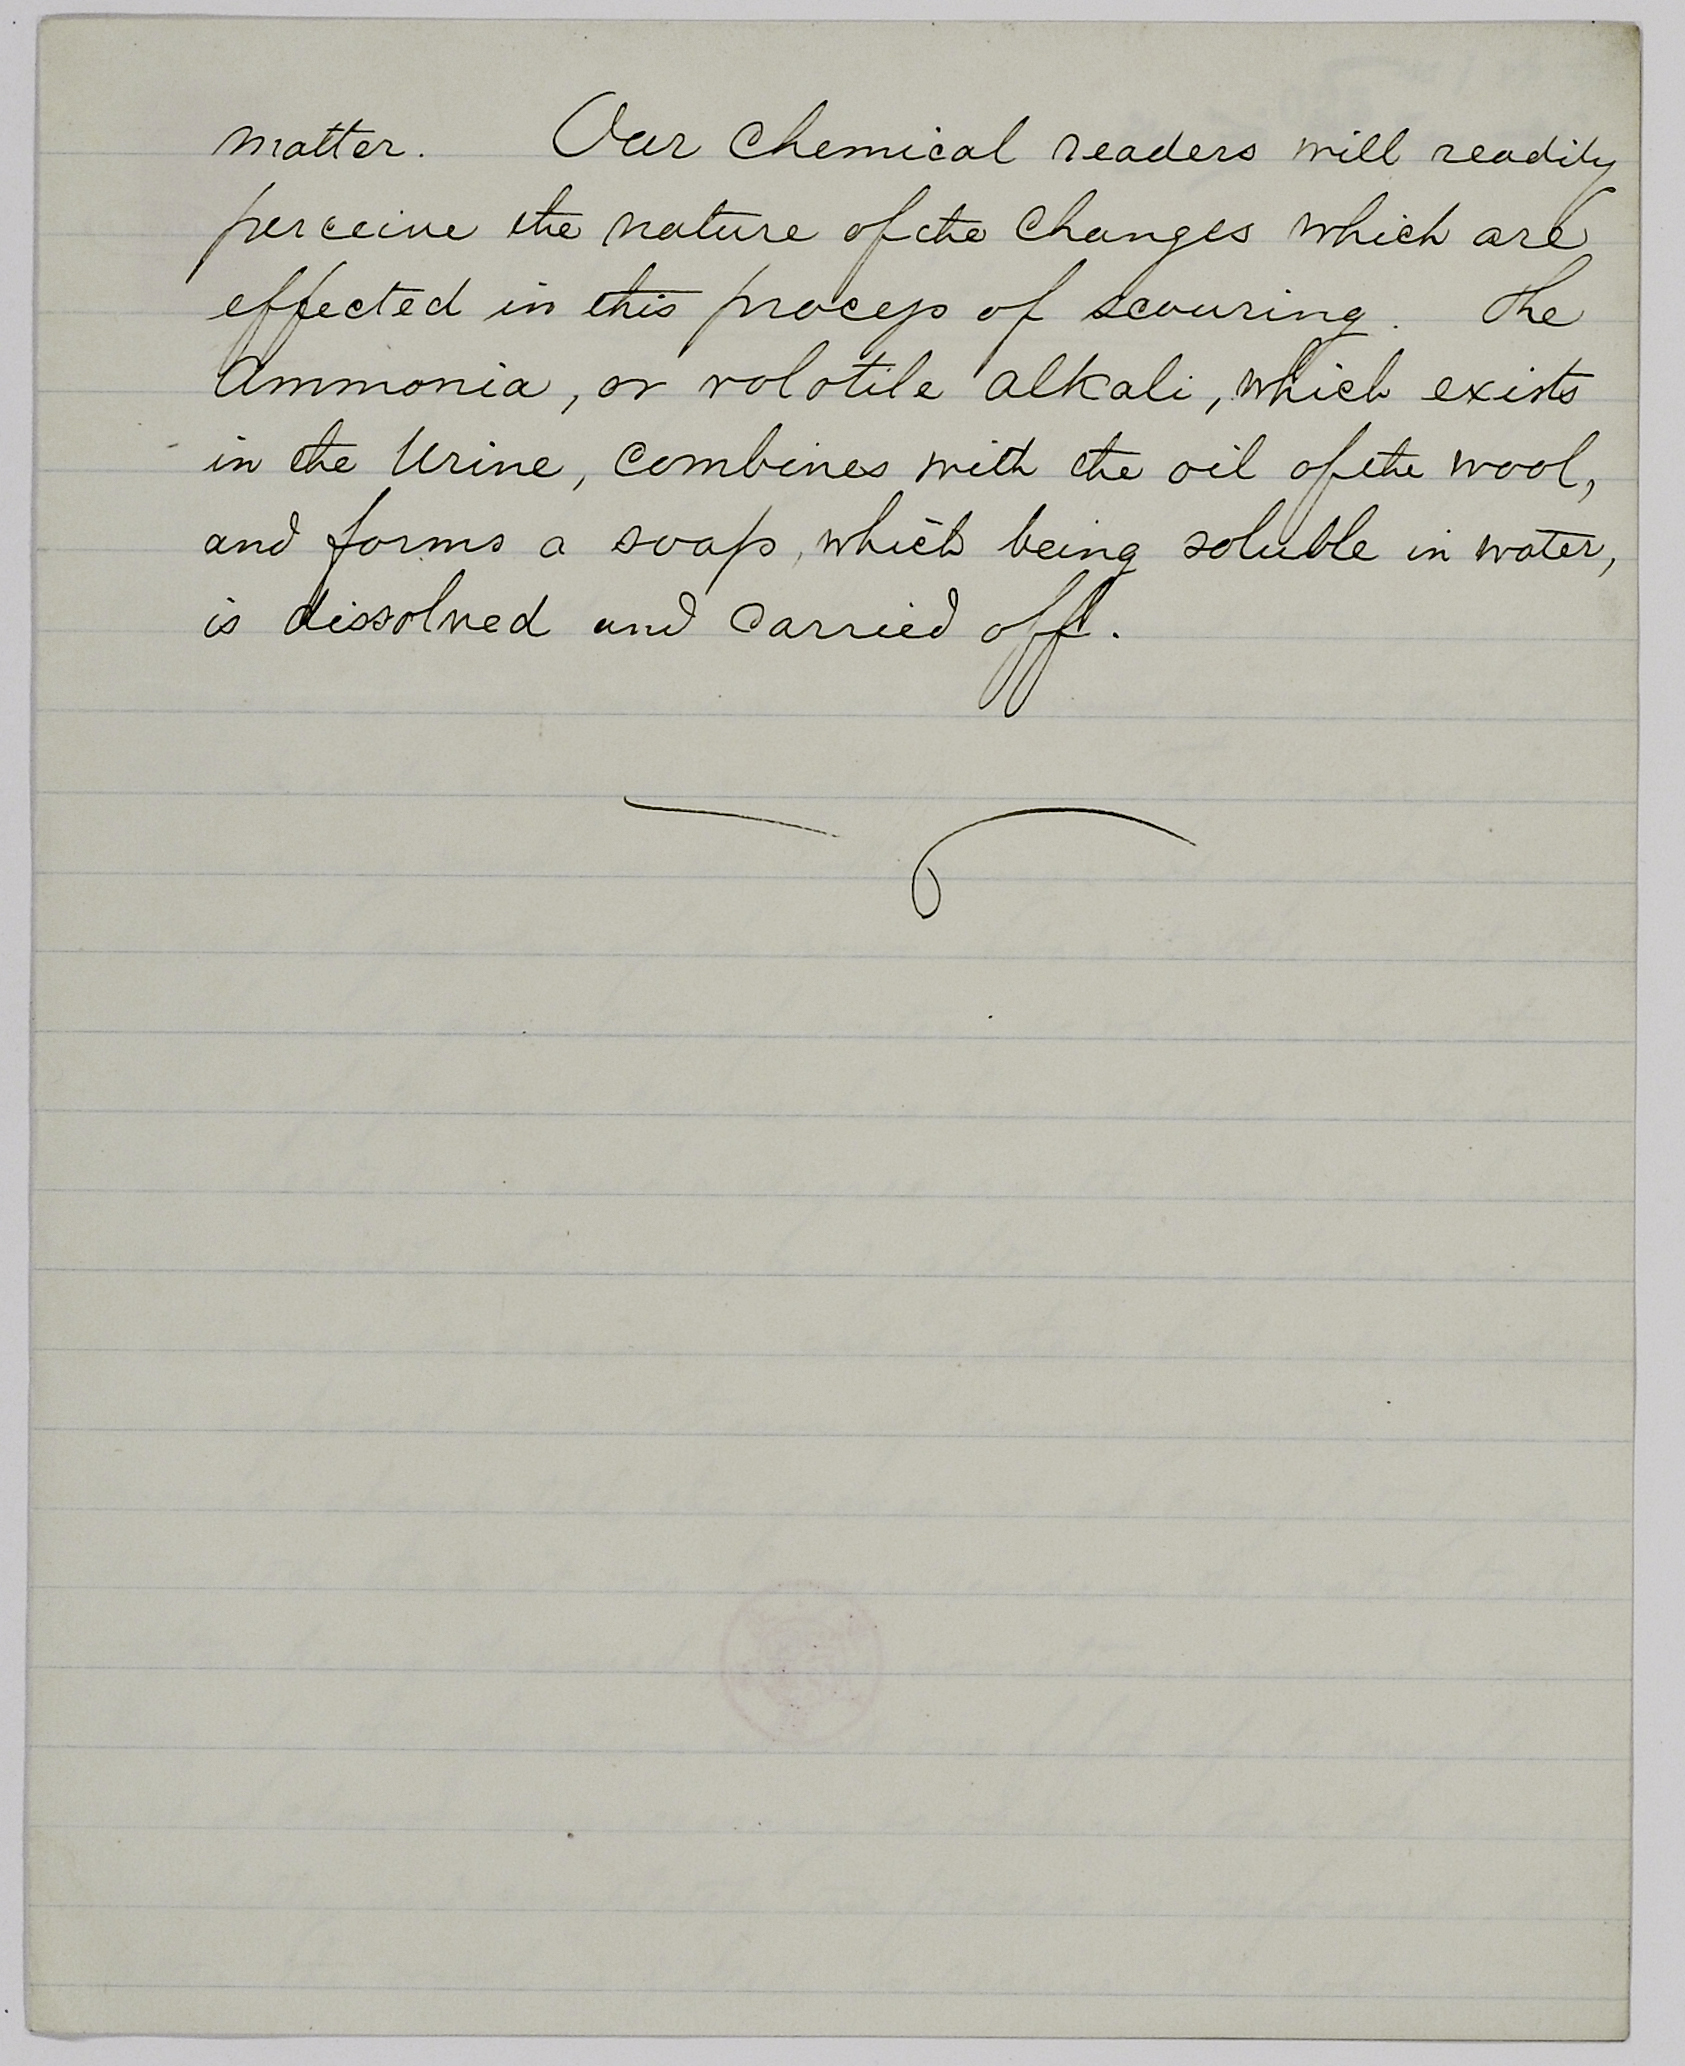 matter. Our Chemical readers will readily
perceive the nature of the changes which are
effected in this process of scouring. The
Ammonia, or volatile alkali, which exists
in the Urine, combines with the oil of the wool,
and forms a soap, which being soluble in water,
is dissolved and carried off.